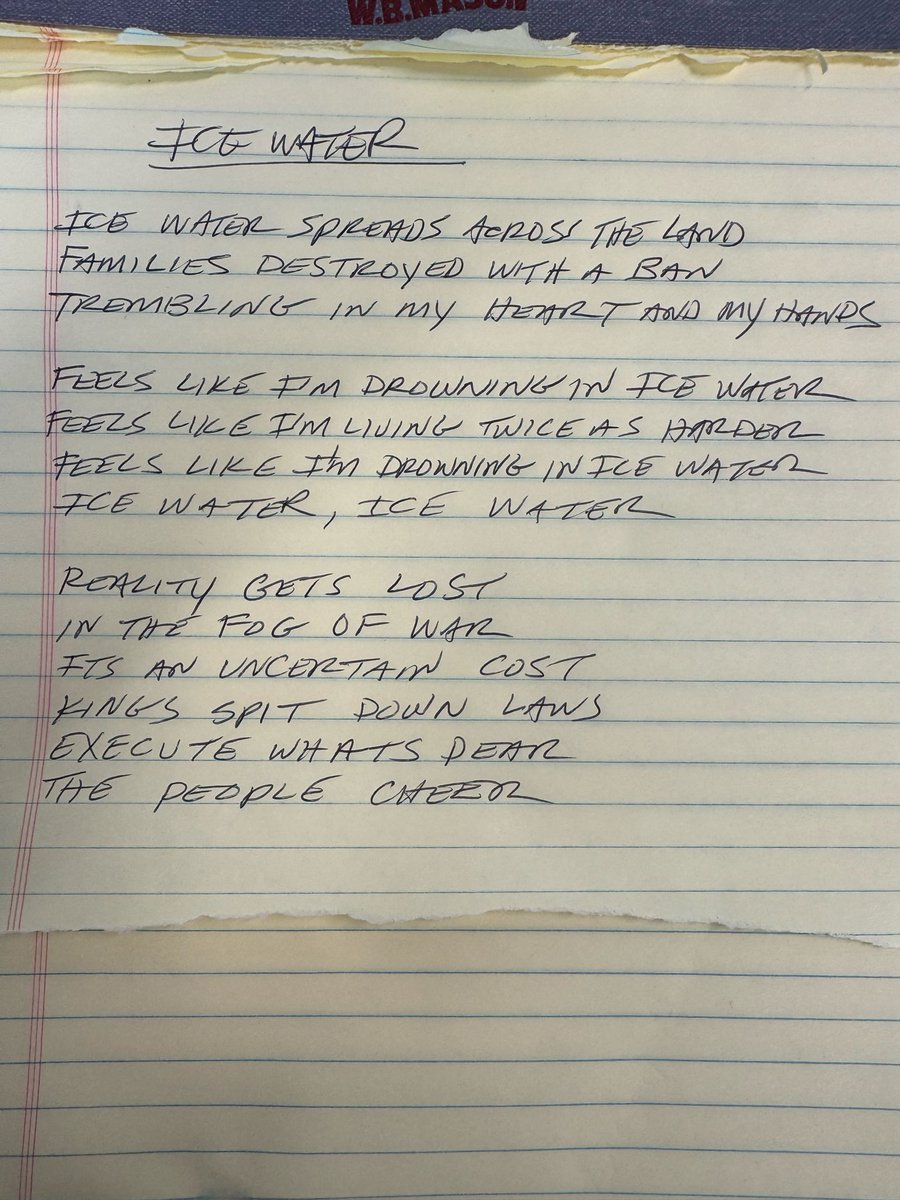 W.B.MASON
ICE WATER
ICE WATER SPREADS ACROSS THE LAND
FAMILIES DESTROYED WITH A BAN
TREMBLING IN MY HEART AND MY HANDS
FEELS LIKE I'M DROWNING IN ICE WATER
FEELS LIKE I'M LIVING TWICE AS HARDER
FEELS LIKE I'M DROWNING IN ICE WATER
ICE WATER, ICE WATER
REALITY GETS LOST
IN THE FOG OF WAR
ITS AN UNCERTAIN COST
KINGS SPIT DOWN LAWS
EXECUTE WHATS DEAR
THE PEOPLE CHEER